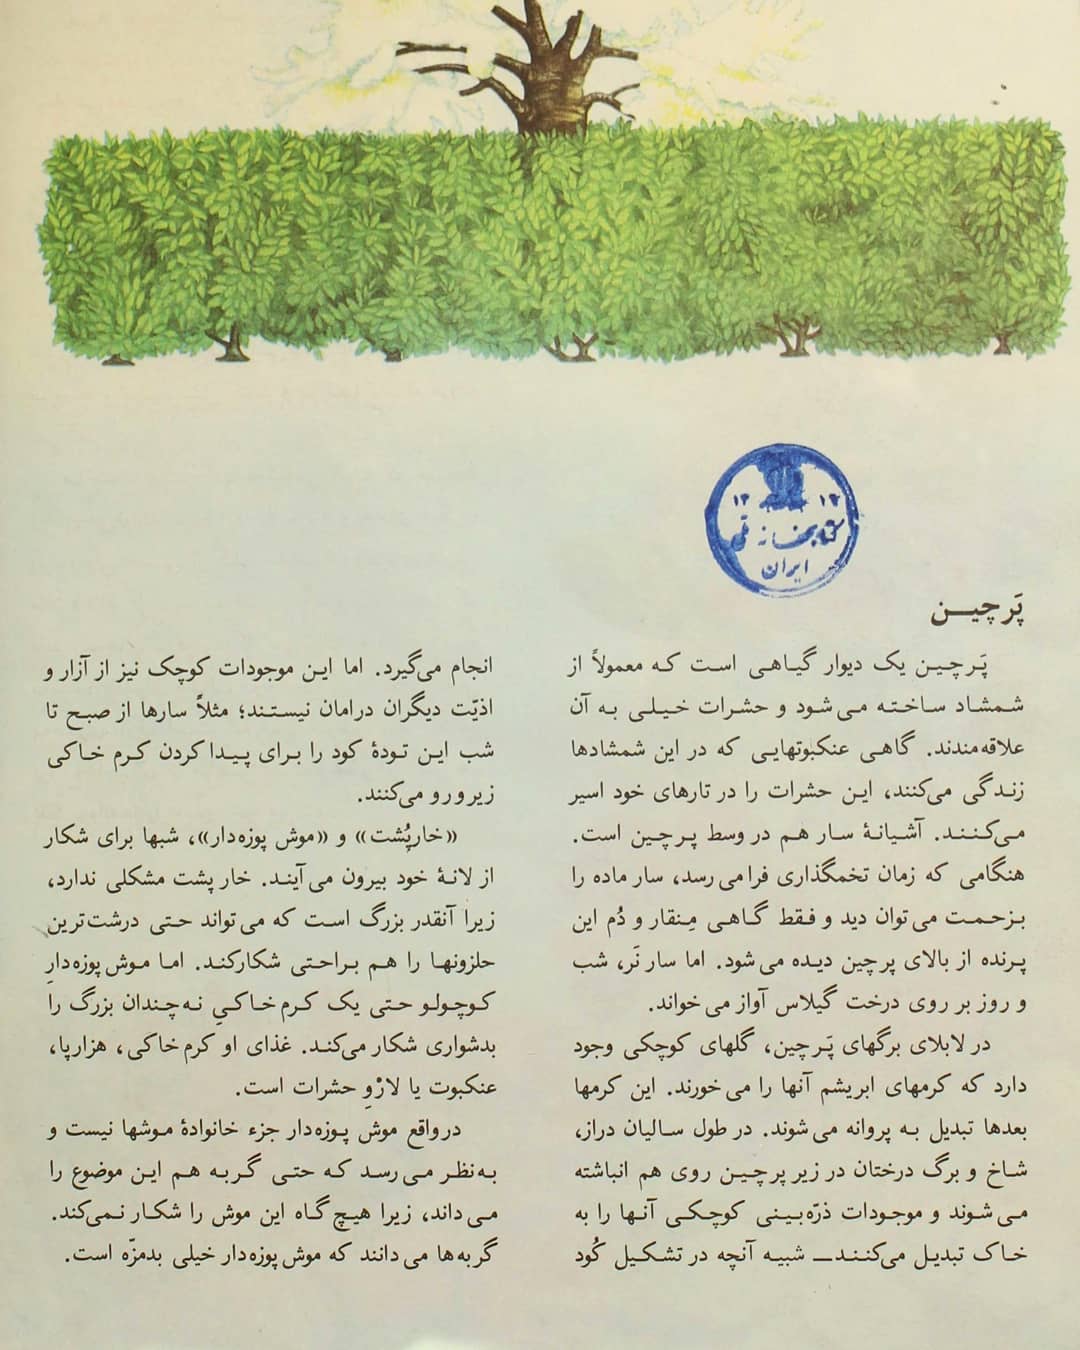 ۱۳ ۱۶
کتابخانه ملی
ایران
پَرچیـن
پَـرچـیـن یک دیوار گیـاهـی است کـه معمولاً از
شـمـشـاد سـاخـتـه مـی‌شود و حشرات خـیـلـی بـه آن
علاقه‌مندند. گاهـی عنکبوتهایـی که در این شمشادها
زنـدگی می‌کنند، ایـن حشرات را در تارهای خود اسیر
مـی‌کـنـنـد. آشیـانـهٔ سـار هـم در وسط پـرچـین است.
هنگامی که زمان تخمگذاری فرا می‌رسد، سار ماده را
بـزحـمـت می‌توان دید و فـقـط گـاهـی مِـنقار و دُم این
پـرنده از بالای پرچین دیـده می‌شود. اما سار نَر، شب
و روز بر روی درخت گیلاس آواز می‌خواند.
در لابلای برگهای پَـرچین، گلهای کوچکی وجود
دارد که کرمهای ابریشم آنها را می‌خورند. این کرمها
بعدها تبدیل بـه پروانه می‌شوند. در طول سـالیان دراز،
شـاخ و برگ درختان در زیر پرچـیـن روی هـم انباشته
می‌شوند و موجودات ذرّه‌بـیـنی کوچـکـی آنـهـا را به
خـاک تبدیـل می‌کـنـنـد ــ شبیـه آنچه در تـشـکـیـل کُود
انجام می‌گیرد. اما ایـن موجودات کوچک نیز از آزار و
اذیّت دیگران درامان نیستند؛ مثلاً سارها از صبح تا
شب ایـن تـودهٔ کود را بـرای پـیـدا کردن کـرم خـاکـی
زیر و رو می‌کنند.
«خارپُشت» و «موش پوزه‌دار»، شبها برای شکار
از لانـهٔ خود بیرون مـی‌آیـنـد. خارپشت مشکلی ندارد،
زیرا آنقدر بزرگ اسـت که می‌تواند حتـی درشت‌ترین
حلزونهـا را هـم بـراحتی شکارکنـد. امـا مـوش پوزه‌دارِ
کـوچـولـو حتـی یک کـرم خـاکـیِ نـه چـندان بزرگ را
بدشواری شکار می‌کنـد. غذای او کرم خاکی، هزارپا،
عنکبوت یا لارْوِ حشرات است.
درواقع موش پـوزه‌دار جزء خانوادهٔ موشها نیست و
بـه نظـر مـی‌رسد کـه حتـی گـربـه هـم ایـن موضوع را
مـی‌داند، زیرا هیـچ گاه این موش را شکـار نـمی‌کند.
گربه‌ها می‌دانند که موش پوزه‌دار خیلی بدمزّه است.